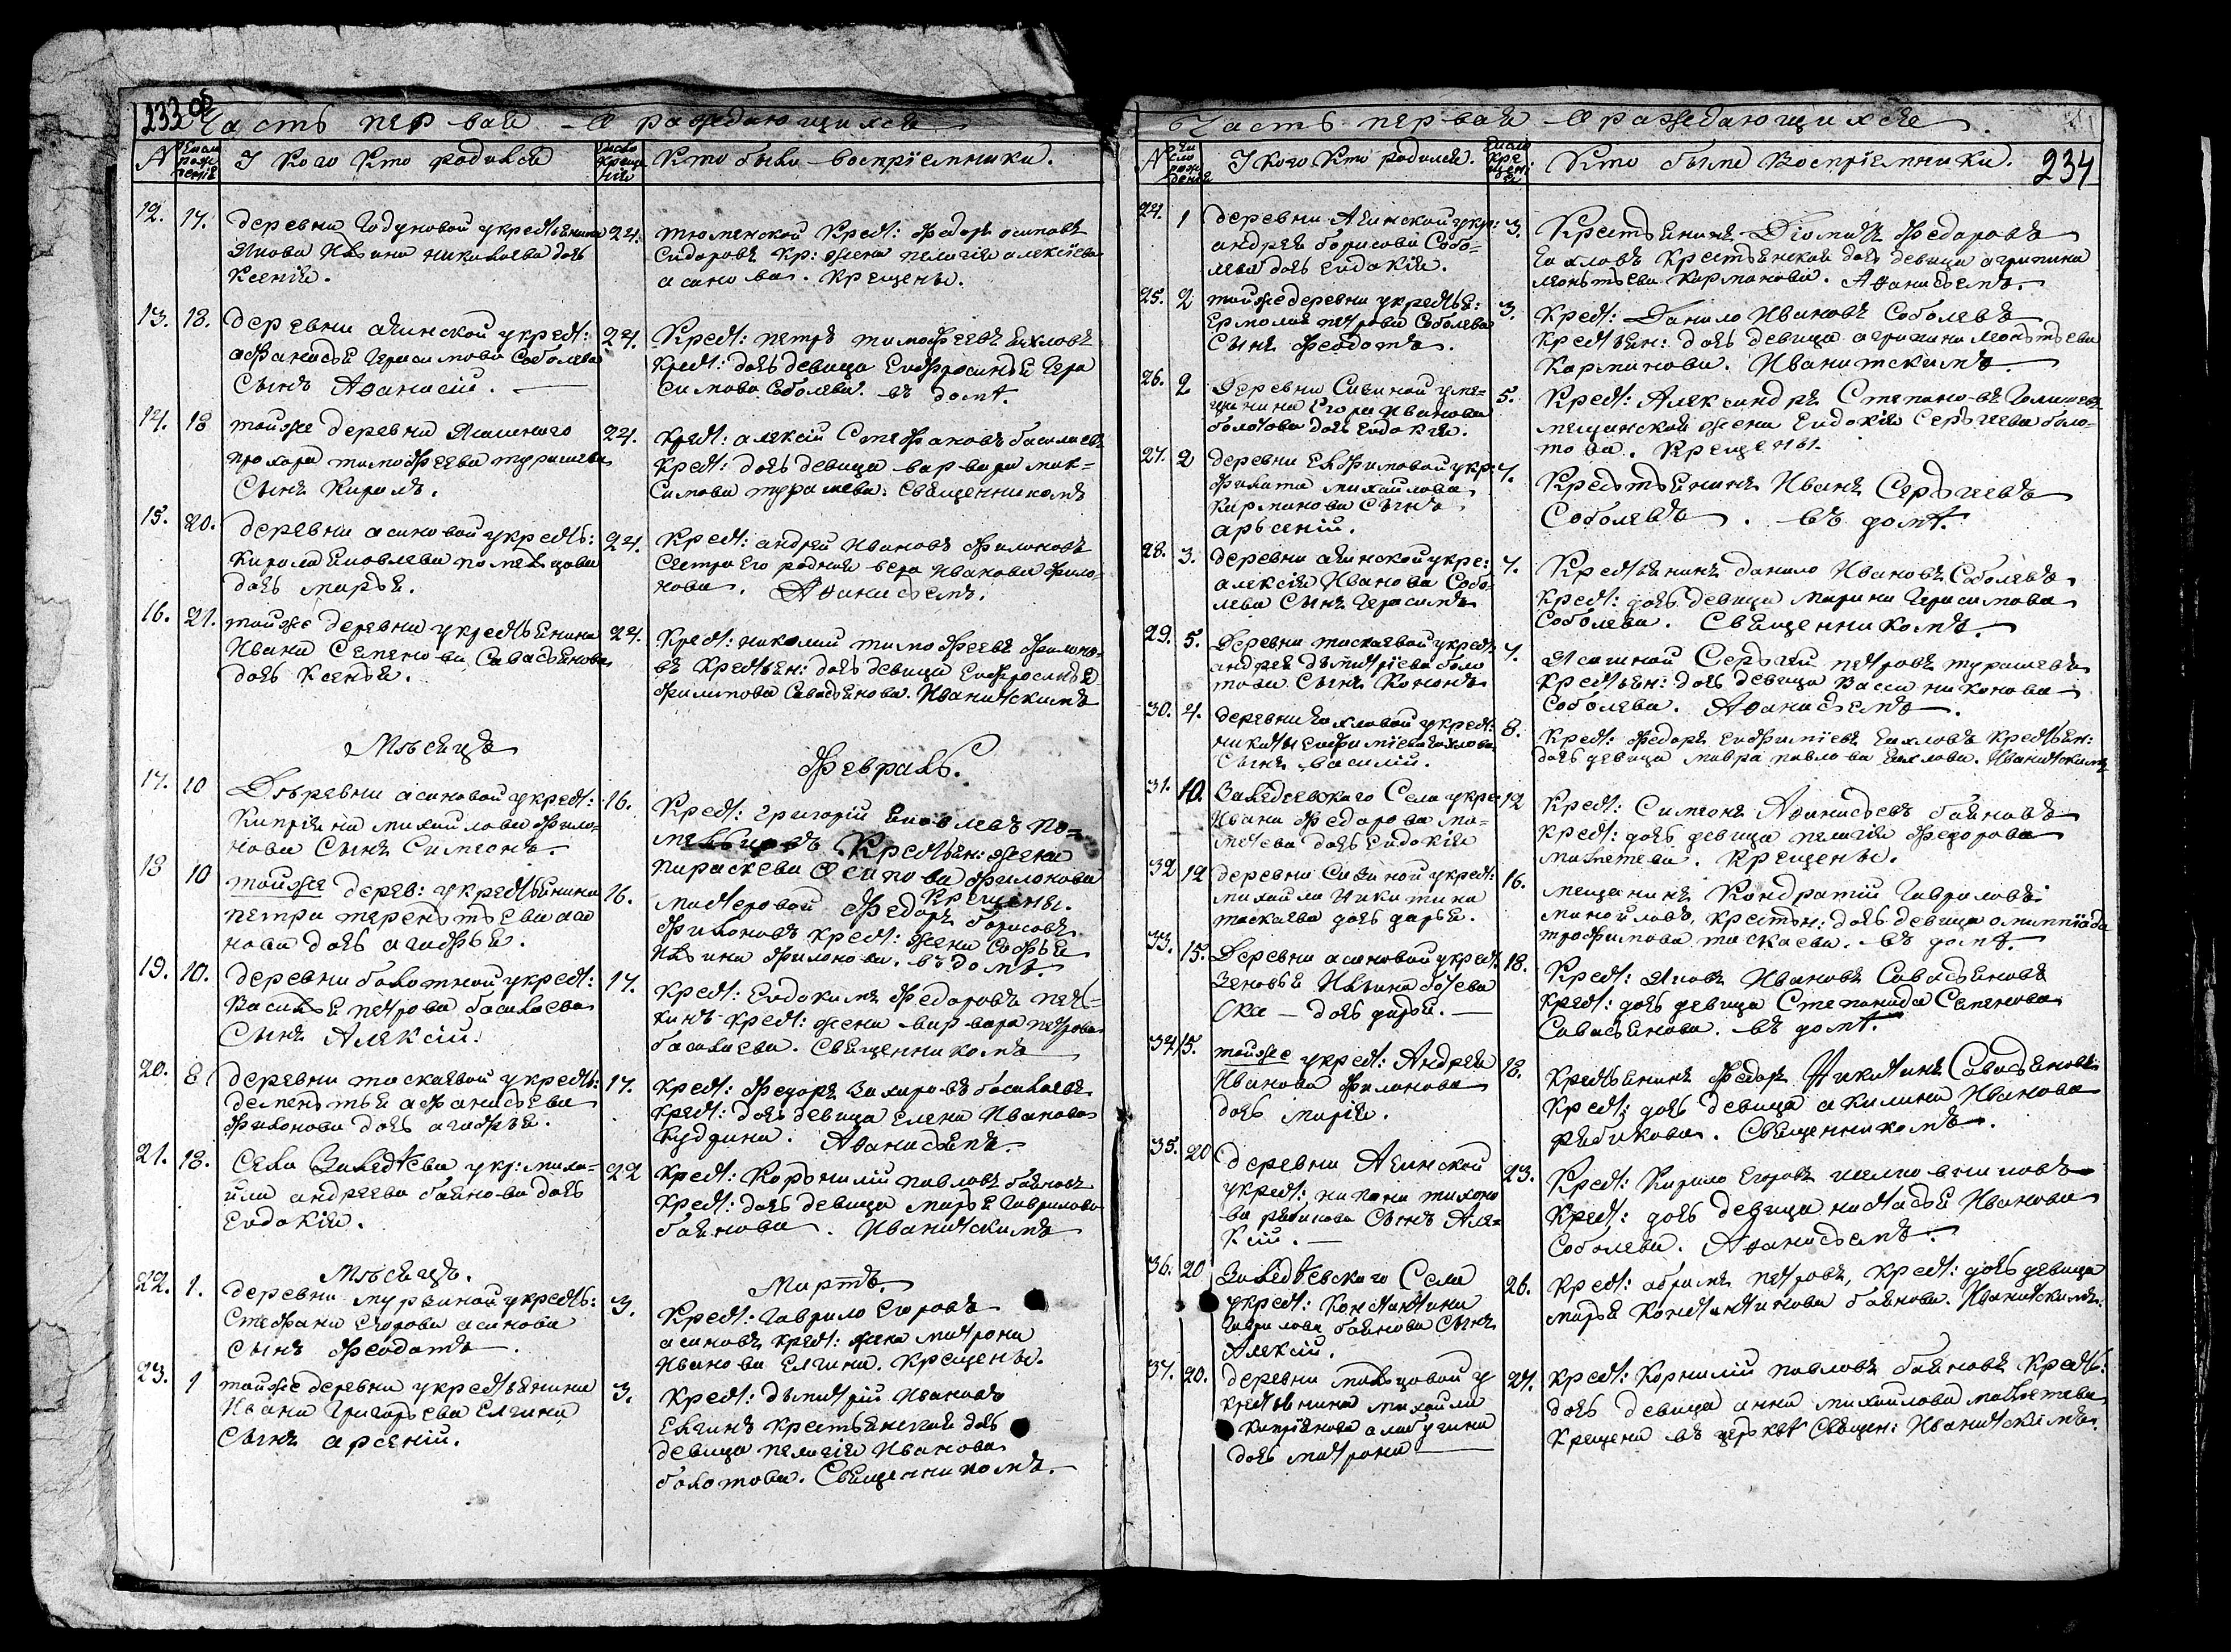 233 об
Часть первая О раждающихся
№
Число рожденія
У кого кто родился
Число крещенія
Кто были воспріемники.
12. 17. деревни Годуновой у крестьянина 24.
Якова Ильина Николаева дочь
Ксенія.
тюменской Крест: Федоръ Осиповъ
Сидоровъ Кр: жена Пелагія Алексіева
Асанова. Крещены.
13. 18. Деревни Ачинской у крест: 24.
Афанасья Герасимова Соболева
Сынъ Аѳанасій.
Крест: Петръ Тимофеевъ
Крест: дочь девица Евфросинья Гера
симова Соболева. въ домѣ.
14. 18 тойже деревни Ясашного 24.
Прохора Тимофеева Турашева
Сынъ Кирилъ.
Крест: Алексій Стефановъ Басалаевъ
Крест: дочь девица Варвара Мак=
симова Турашева. Священникомъ
15. 20. деревни Асановой у крестъ: 24.
Кирила Яковлева
дочь Марья.
Крест: Андрей Ивановъ Филоновъ
Сестра Его родная Вера Иванова Фило-
нова. Аѳанасьемъ.
16. 21. тойже деревни у крестьянина 24.
Ивана Семенова Савасьянова
дочь Ксенья.
Крест: Николай Тимофеевъ Филоно-
въ Крестьян: дочь девица Евфросинья
Филипова Савасьянова. Иваницкимъ
Мѣсяцъ Февраль.
17. 10 Дѣревни Асановой у крест: 16.
Кипріяна Михайлова Фило-
нова Сынъ Симеонъ.
Крест: Григорій Яковлевъ По=
Крестьян: жена
Параскева Филонова
Крещены.
18 10 тойже дерев: у крестьянина 16.
Петра Терентьева Аса
нова дочь Агафья.
Мастеровой Федоръ Борисовъ
Филоновъ крест: жена Софья
Ильина Филонова. въ домѣ.
19. 10. деревни Болотной у крест: 17.
Василья Петрова Басалаева
Сынъ Алексій.
Крест: Евдокимъ Федоровъ Пет=
кинъ крест: жена Варвара Петрова
Басалаева. Священникомъ
20. 8 деревни Таскаевой у крестъ: 17.
Дементья Афанасьева
Филонова дочь Агафья.
Крест: Федоръ Захаровъ Басалаевъ
Крест: дочь девица Елена Иванова
Кудрина. Аѳанасьемъ.
21. 18. Села Заледѣева у кр: Миха=
йла Андреева Баянова дочь
Евдокія.
22 Крест: Корнилій Павловъ Баяновъ
Крест: дочь девица Марья Гаврилова
Баянова. Иваницкимъ
Мѣсяцъ. Мартъ.
22. 1. деревни Мурзиной у крестъ: 3.
Стефана Егорова Асанова
сынъ Феодотъ.
Крест: Гаврило Егоровъ
Асановъ крест: жена Матрона
Иванова Елгина. Крещены.
23. 1 тойже деревни у крестьянина 3.
Ивана Григорьева Елгина
Сынъ Арсеній.
Крест: Дьмитрій Ивановъ
Елгинъ крестьянская дочь
девица Пелагія Иванова
Болотова. Священникомъ.
Часть первая О раждающихся.
234
№
Число рожденія
У кого кто родился.
Число крещенія
Кто были Воспріемники.
24. 1 деревни Ачинской у кр: 3.
Андрея Борисова Собо-
лева дочь Евдокія.
Крестьянинъ Діомидъ Федоровъ
Крестьянская дочь девица Агрипина
Леонтьева Карманова. Аѳанасьемъ.
25. 2 тойже деревни у крестья: 3.
Ермолая Петрова Соболева
Сынъ Феодотъ.
Крест: Данило Ивановъ Соболевъ
Крестьян: дочь девица Агрипина Леонтьева
Карманова. Иваницкимъ.
26. 2 Деревни Сивиной у ме= 5.
щанина Егора Иванова
Болотова дочь Евдокия.
Крест: Александръ Степановъ
мещанской жена Евдокія Сергѣева Боло-
това. Крещены.
27. 2 деревни Евфимовой у кр: 7.
Филата Михайлова
Карманова Сынъ
Арьсеній.
Крестьянинъ Иванъ Сергѣевъ
Соболевъ. въ домѣ.
28. 3. деревни Ачинской у кре: 7.
Алексія Иванова Собо-
лева Сынъ Герасимъ
Крестьянинъ Данило Ивановъ Соболевъ
Крест: дочь девица Марина Герасимова
Соболева. Священникомъ.
29. 5. Деревни Таскаевой у крест 7.
Андрея Дьмитріева Боло
това Сынъ Кононъ
Ясашной Сергѣй Петровъ Турашевъ
Крестьян: дочь девица Васса Никонова
Соболева. Аѳанасьемъ.
30. 4. деревни у крест: 8.
Никиты Евфиміева
Сынъ Василій.
Крест: Федоръ Евфиміевъ Крестьян:
дочь девица Мавра Павлова Иваницкимъ
31. 10. Заледеевского Села у кре 12
Ивана Федорова Ма-
метева дочь Евдокія
Крест: Симеонъ Аѳанасьевъ Баяновъ
Крест: дочь девица Пелагія Федорова
Маметева. Крещены.
32 12 деревни Сивиной у крест: 16.
Михайла Никитина
Таскаева дочь Дарья.
Мещанинъ Кондратій Гавриловъ
Манойловъ, крестьян: дочь девица Олимпіада
Трофимова Таскаева. въ домѣ.
33. 15. Деревни Асановой у крест: 18.
Зеновья Ильина
дочь Дарья.
Крест: Яковъ Ивановъ Савасьяновъ
Крест: дочь девица Степанида Семенова
Савасьянова. въ домѣ.
34 15. тойже у крест: Андрея 18.
Иванова Филонова
дочь Марія.
Крестьянинъ Федоръ Никитинъ Савасьяновъ
Крест: дочь девица Акилина Иванова
Рябикова. Священникомъ.
35. 20 Деревни Ачинской 23.
у крест: Тихоно
ва Рябикова Сынъ Але=
ксій.
Крест: Кирило Егоровъ
Крест: дочь девица Настасья Иванова
Соболева. Аѳанасьемъ.
36. 20 Заледѣевского Села 26.
у крест: Константина
Гаврилова Баянова Сынъ
Алексій.
Крест: Абрамъ Петровъ, Крест: дочь девица
Марья Константинова Баянова. Иваницкимъ.
37. 20. деревни Мальцовой у 27.
Крестьянина Михайла
Кипріянова Алабугина
дочь Матрона
Крест: Корнилій Павловъ Баяновъ Крестъ:
дочь девица Анна Михайлова Маметева
Крещена въ церьквѣ Священ: Иваницкимъ.